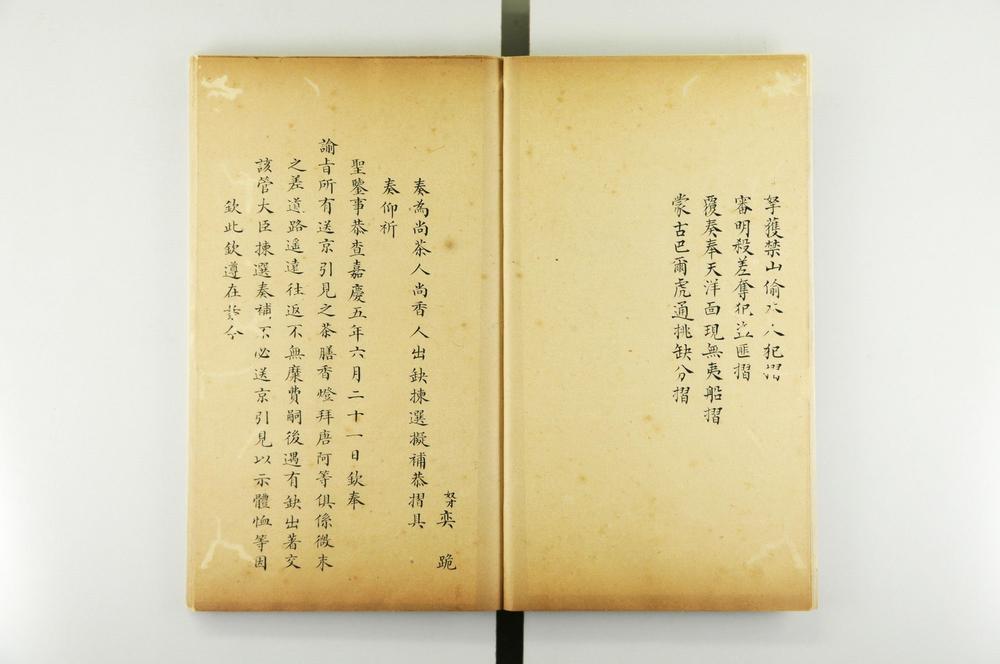 拏獲禁山偷木人犯摺
審明殺差奪犯盜匪摺
覆奏奉天洋面現無夷船摺
蒙古巴爾虎通挑缺分摺
奴才奕 跪
奏為尚茶人尚香人出缺揀選擬補恭摺具
奏仰祈
聖鑒事恭查嘉慶五年六月二十一日欽奉
諭旨所有送京引見之茶膳香燈拜唐阿等俱係微末
之差道路遙遠往返不無糜費嗣後遇有缺出著交
該管大臣揀選奏補不必送京引見以示體恤等因
欽此欽遵在案今